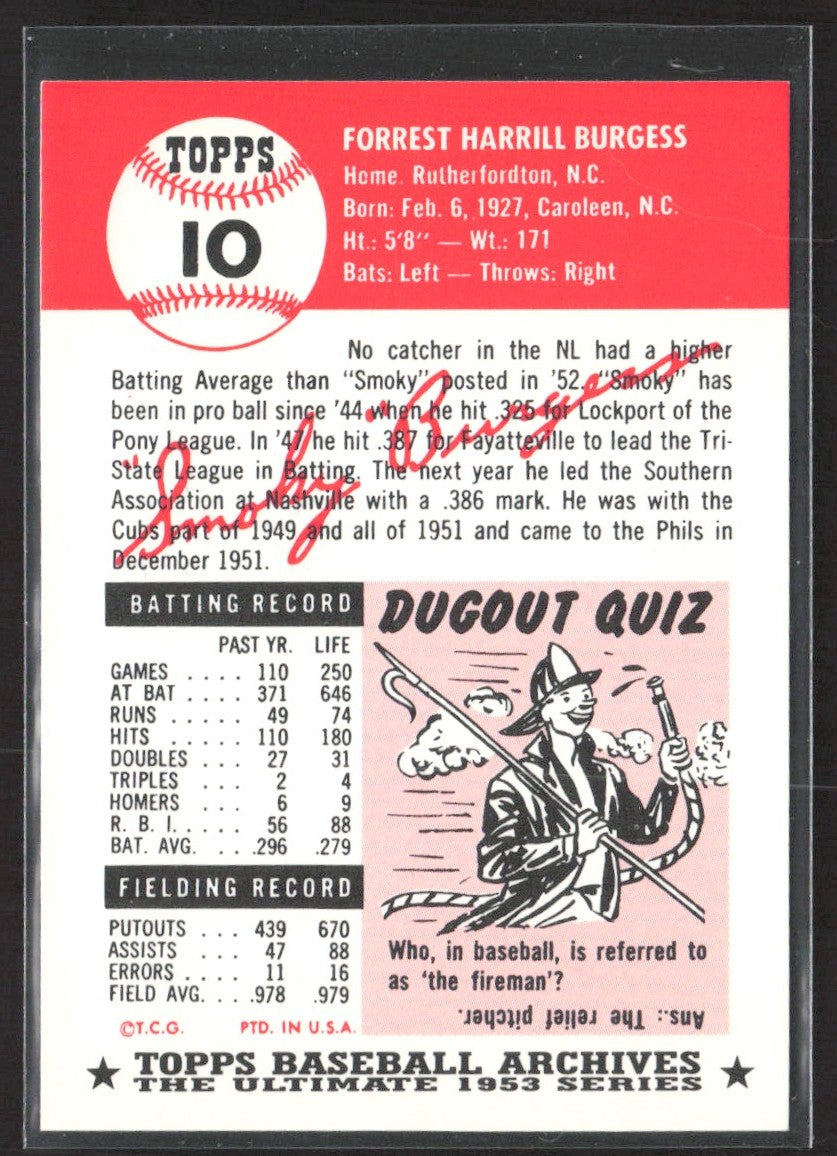 TOPPS
10
FORREST HARRILL BURGESS
Home. Rutherfordton, N.C.
Born: Feb. 6, 1927, Caroleen, N.C.
Ht.: 5'8" — Wt.: 171
Bats: Left — Throws: Right
No catcher in the NL had a higher
Batting Average than "Smoky" posted in '52. "Smoky" has
been in pro ball since '44 when he hit .325 for Lockport of the
Pony League. In '47 he hit .387 for Fayatteville to lead the Tri-
State League in Batting. The next year he led the Southern
Association at Nashville with a .386 mark. He was with the
Cubs part of 1949 and all of 1951 and came to the Phils in
December 1951.
"Smoky" Burgess
BATTING RECORD
PAST YR. LIFE
GAMES .... 110 250
AT BAT .... 371 646
RUNS ..... 49 74
HITS ..... 110 180
DOUBLES .. 27 31
TRIPLES ... 2 4
HOMERS ... 6 9
R. B. I. .... 56 88
BAT. AVG. ... .296 .279
FIELDING RECORD
PUTOUTS ... 439 670
ASSISTS ... 47 88
ERRORS .... 11 16
FIELD AVG. ... .978 .979
©T.C.G. PTD. IN U.S.A.
DUGOUT QUIZ
Who, in baseball, is referred to
as 'the fireman'?
Ans.: The relief pitcher.
★ TOPPS BASEBALL ARCHIVES ★
THE ULTIMATE 1953 SERIES